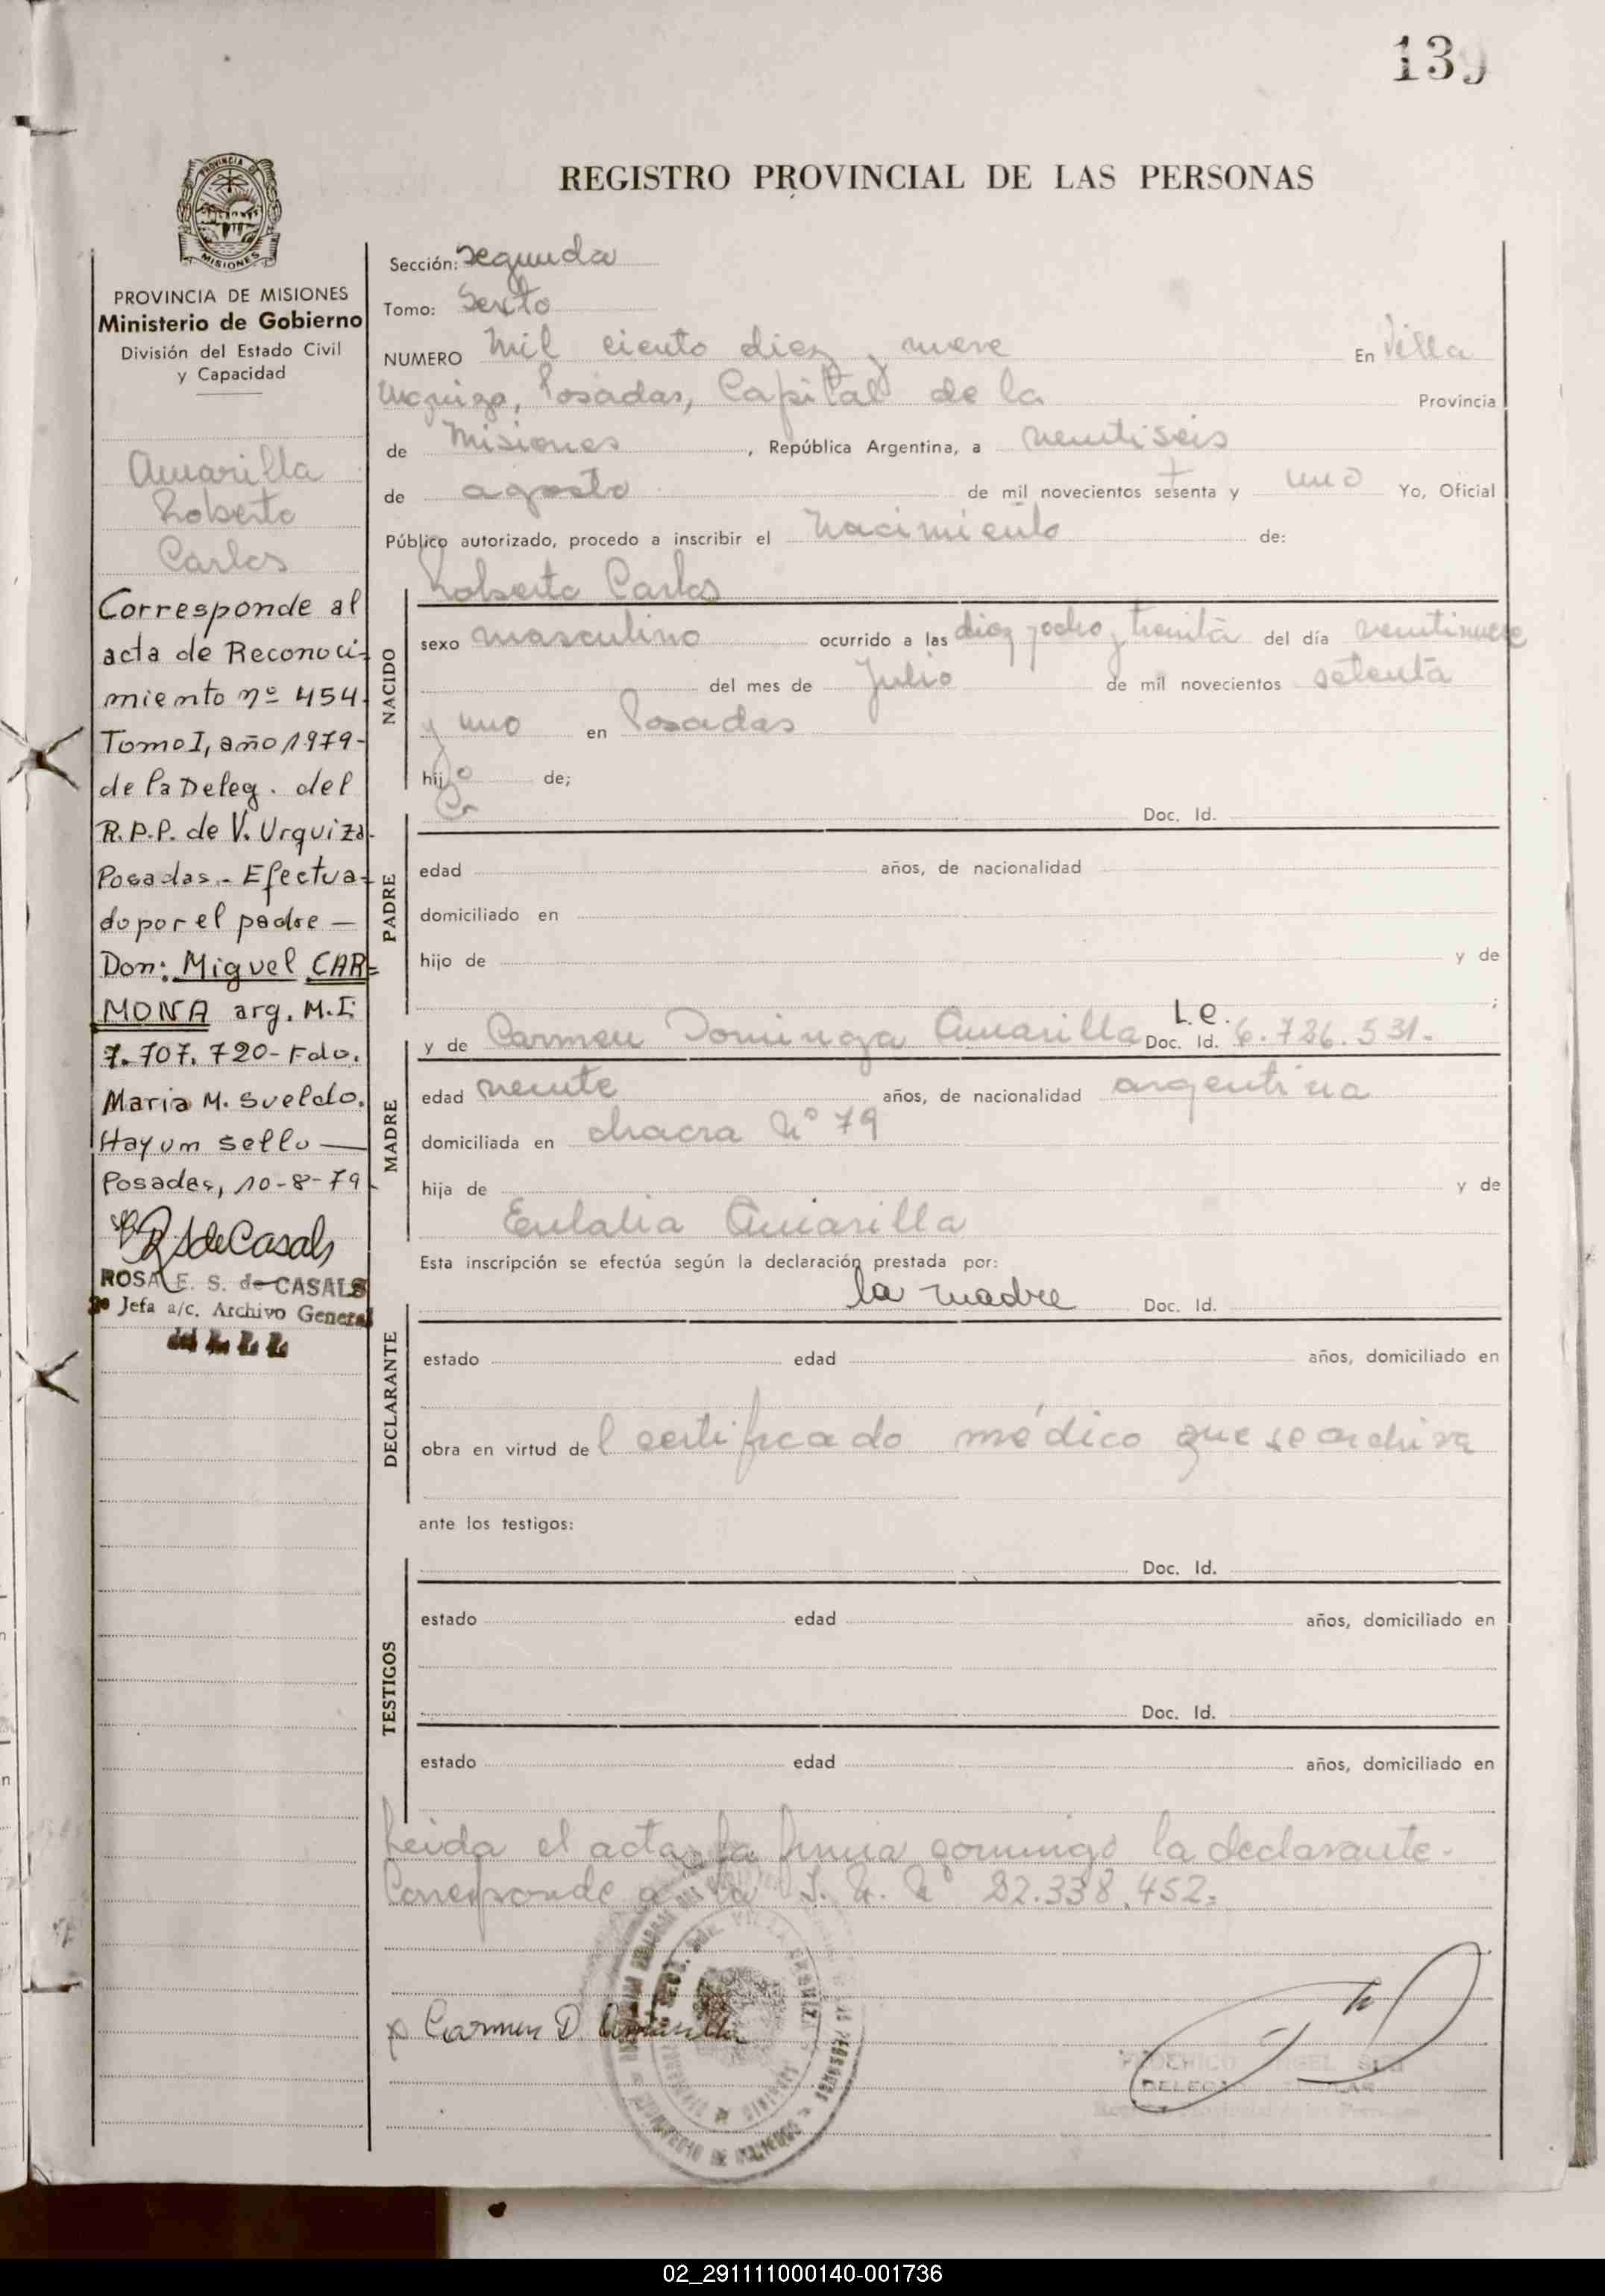 139
REGISTRO PROVINCIAL DE LAS PERSONAS
PROVINCIA DE
MISIONES
PROVINCIA DE MISIONES
Ministerio de Gobierno
División del Estado Civil
y Capacidad
Amarilla
Roberto
Carlos
Corresponde al
acta de Reconoci-
miento nº 454-
Tomo I, año 1979-
de la Deleg. del
R.P.P. de V. Urquiza-
Posadas.- Efectua-
do por el padre —
Don: Miguel CAR=
MONA arg. M.I:
7.707.720- Fdo.
Maria M. Sueldo.
Hay un sello —
Posadas, 10-8-79-
RSdeCasals
ROSA E. S. de CASALS
Jefa a/c. Archivo General
Sección: Segunda
Tomo: Sexto
NUMERO Mil ciento diez y nueve En Villa
Urquiza, Posadas, Capital de la Provincia
de Misiones, República Argentina, a veintiseis
de agosto de mil novecientos sesenta y uno Yo, Oficial
Público autorizado, procedo a inscribir el nacimiento de:
Roberto Carlos
NACIDO
sexo masculino ocurrido a las diez y ocho y treinta del día veintinueve
del mes de Julio de mil novecientos setenta
y uno en Posadas
hijo de;
Doc. Id.
PADRE
edad años, de nacionalidad
domiciliado en
hijo de y de
;
L.C.
y de Carmen Dominga Amarilla Doc. Id. 6.726.531.-
MADRE
edad veinte años, de nacionalidad argentina
domiciliada en chacra Nº 79
hija de y de
Eulalia Amarilla
Esta inscripción se efectúa según la declaración prestada por:
la madre Doc. Id.
DECLARANTE
estado edad años, domiciliado en
obra en virtud del certificado médico que se archiva
ante los testigos:
Doc. Id.
TESTIGOS
estado edad años, domiciliado en
Doc. Id.
estado edad años, domiciliado en
Leida el acta, la firma conmigo la declarante.-
Corresponde a la Nº 22.338.452.-
Carmen D. Amarilla
02_291111000140-001736